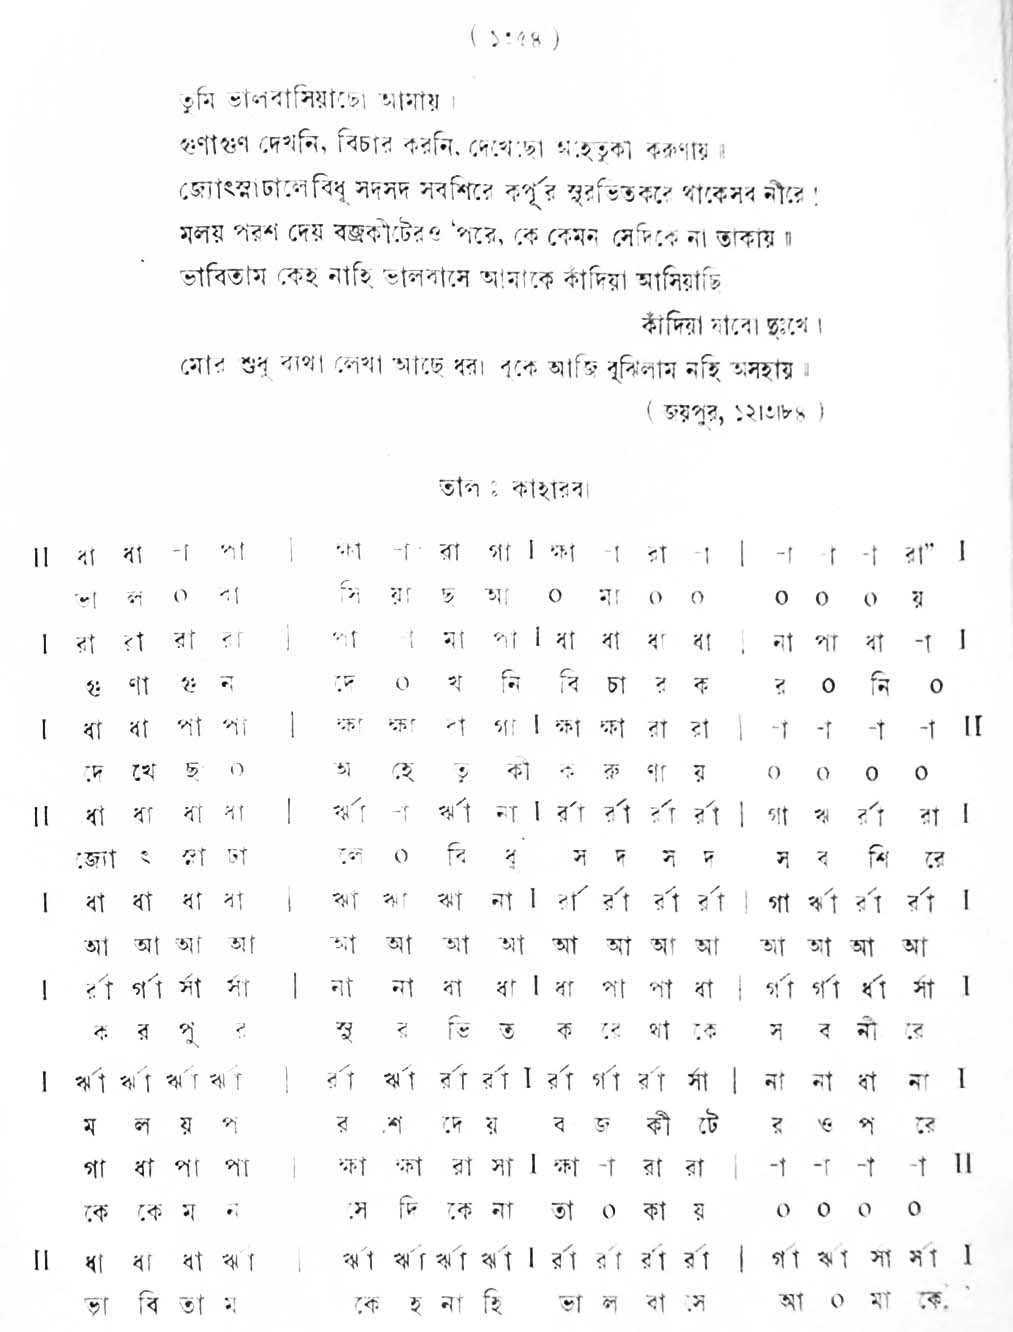 ( ১৩৫৪ )
তুমি ভালবাসিয়াছো আমায় ।
গুণাগুণ দেখনি, বিচার করনি, দেখেছো অহেতুকী করুণায় ॥
জ্যোৎস্নাঢালেবিধু সদসদ সবশিরে কর্পূর সুরভিতকরে থাকেসব নীরে !
মলয় পরশ দেয় বজ্রকীটেরও ‘পরে, কে কেমন সেদিকে না তাকায় ॥
ভাবিতাম কেহ নাহি ভালবাসে আমাকে কাঁদিয়া আসিয়াছি
কাঁদিয়া যাবো দুঃখে ।
মোর শুধু ব্যথা লেখা আছে ধরা বুকে আজি বুঝিলাম নহি অসহায় ॥
( জয়পুর, ১২।৩।৮৪ )
তাল : কাহারবা
II ধা ধা -া পা | ক্ষা -া রা গা I ক্ষা -া রা -া | -া -া -া রা” I
ভা ল ০ বা সি য়া ছ আ ০ মা ০ ০ ০ ০ ০ য়
I রা রা রা রা | পা -া মা পা I ধা ধা ধা ধা | না পা ধা -া I
গু ণা গু ন দে ০ খ নি বি চা র ক র ০ নি ০
I ধা ধা পা পা | ক্ষা ক্ষা রা গা I ক্ষা ক্ষা রা রা | -া -া -া -া II
দে খে ছ ০ অ হে তু কী ক রু ণা য় ০ ০ ০ ০
II ধা ধা ধা ধা | র্ঋা -া র্ঋা না I র্রা র্রা র্রা র্রা | গা ঋ র্রা রা I
জ্যো ৎ স্না ঢা লে ০ বি ধু স দ স দ স ব শি রে
I ধা ধা ধা ধা | ঋা ঋা ঋা না I র্রা র্রা র্রা র্রা | গা র্ঋা র্রা র্রা I
আ আ আ আ আ আ আ আ আ আ আ আ আ আ আ আ
I র্রা র্গা র্সা র্সা | না না ধা ধা I ধা পা পা ধা | র্গা র্গা র্ধা র্সা I
ক র পু র সু র ভি ত ক রে থা কে স ব নী রে
I র্ঋা র্ঋা র্ঋা র্ঋা | র্রা র্ঋা র্রা র্রা I র্রা র্গা র্রা র্সা | না না ধা না I
ম ল য় প র শ দে য় ব জ কী টে র ও প রে
গা ধা পা পা | ক্ষা ক্ষা রা সা I ক্ষা -া রা রা | -া -া -া -া II
কে কে ম ন সে দি কে না তা ০ কা য় ০ ০ ০ ০
II ধা ধা ধা ঋা | র্ঋা র্ঋা র্ঋা র্ঋা I র্রা র্রা র্রা র্রা | র্গা র্ঋা র্সা র্সা I
ভা বি তা ম কে হ না হি ভা ল বা সে আ ০ মা কে